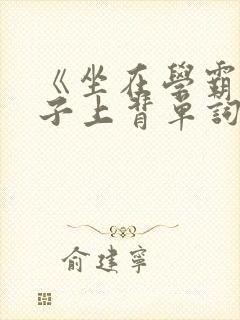 《坐在學霸
子上背單詞
俞建寧